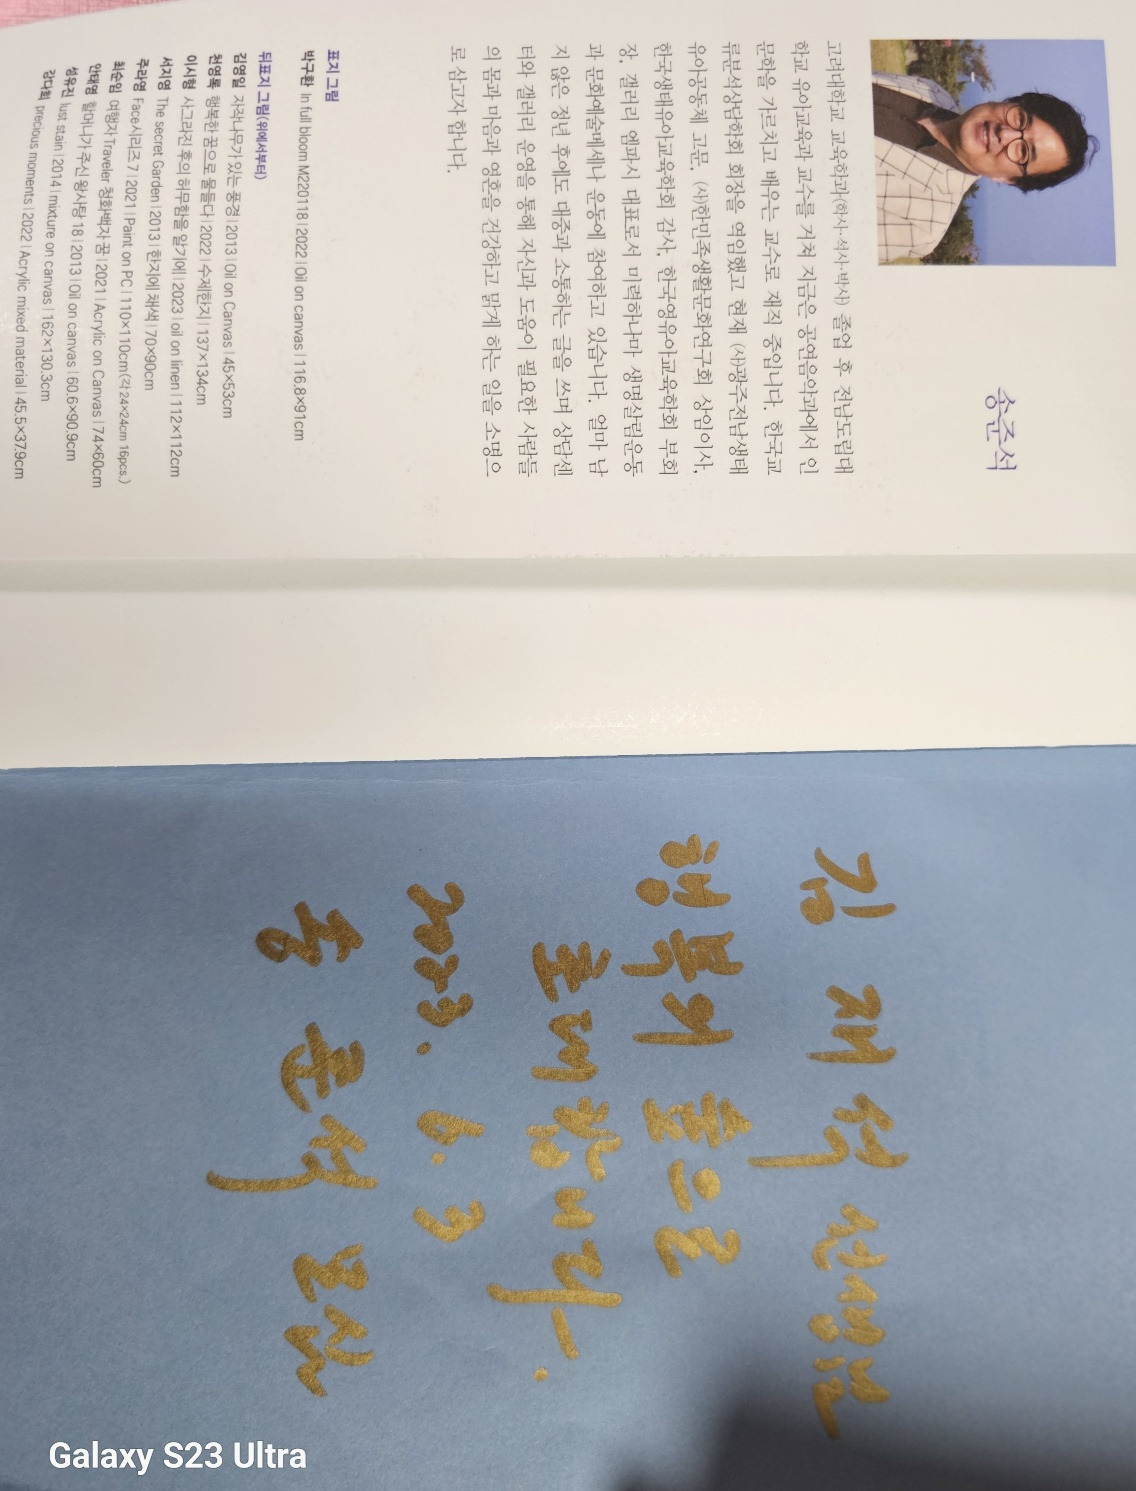 송준석
고려대학교 교육학과(학사·석사·박사) 졸업 후 전남도립대
학교 유아교육과 교수를 거쳐 지금은 공연음악과에서 인
문학을 가르치고 배우는 교수로 재직 중입니다. 한국교
류분석상담학회 회장을 역임했고 현재 (사)광주전남생태
유아공동체 고문, (사)한민족생활문화연구회 상임이사,
한국생태유아교육학회 감사, 한국영유아교육학회 부회
장, 갤러리 엠파시 대표로서 미력하나마 생명살림운동
과 문화예술메세나 운동에 참여하고 있습니다. 얼마 남
지 않은 정년 후에도 대중과 소통하는 글을 쓰며 상담센
터와 갤러리 운영을 통해 자신과 도움이 필요한 사람들
의 몸과 마음과 영혼을 건강하고 맑게 하는 일을 소명으
로 삼고자 합니다.
표지 그림
박구환 In full bloom M220118 | 2022 | Oil on canvas | 116.8×91cm
뒤표지 그림(위에서부터)
김영일 자작나무가 있는 풍경 | 2013 | Oil on Canvas | 45×53cm
천영록 행복한 꿈으로 물들다 | 2022 | 수제한지 | 137×134cm
이시형 사그라진 후의 허무함을 알기에 | 2023 | oil on linen | 112×112cm
서지영 The secret Garden | 2013 | 한지에 채색 | 70×90cm
주라영 Face시리즈 7 | 2021 | Paint on PC | 110×110cm(각 24×24cm 16pcs.)
최순임 여행자Traveler 청화백자 꿈 | 2021 | Acrylic on Canvas | 74×60cm
안태영 할머니가 주신 왕사탕 18 | 2013 | Oil on canvas | 60.6×90.9cm
성유진 lust stain | 2014 | mixture on canvas | 162×130.3cm
강다희 precious moments | 2022 | Acrylic mixed material | 45.5×37.9cm
김 재석 선생님
행복의 꽃으로
초대합니다.
2023. 6. 3
송 준석 모심
Galaxy S23 Ultra